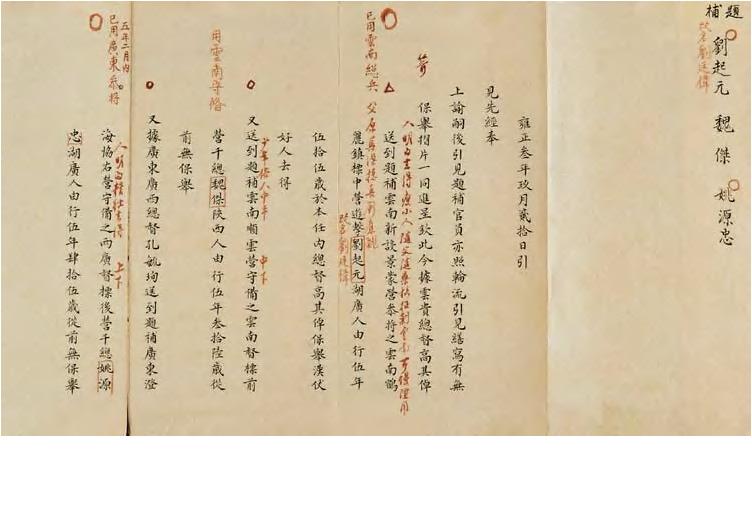 題補
劉起元 魏傑 姚源忠
改名劉廷偉
雍正叁年玖月貳拾日引
見先經奉
上諭嗣後引見題補官員亦照輪流引見繕寫有無
保舉摺片一同進呈欽此今據雲貴總督高其倬
送到題補雲南新設景蒙營叅將之雲南鶴
麗鎮標中營遊擊劉起元湖廣人由行伍年
改名劉廷偉
伍拾伍歲於本任內總督高其倬保舉漢仗
好人去得
已用雲南總兵
又送到題補雲南順雲營守備之雲南督標前
中下
營千總魏傑陝西人由行伍年叁拾陸歲從
前無保舉
用雲南守備
又據廣東廣西總督孔毓珣送到題補廣東澄
海協右營守備之兩廣督標後營千總姚源
上下
忠湖廣人由行伍年肆拾伍歲從前無保舉
五年二月內
已用廣東叅將